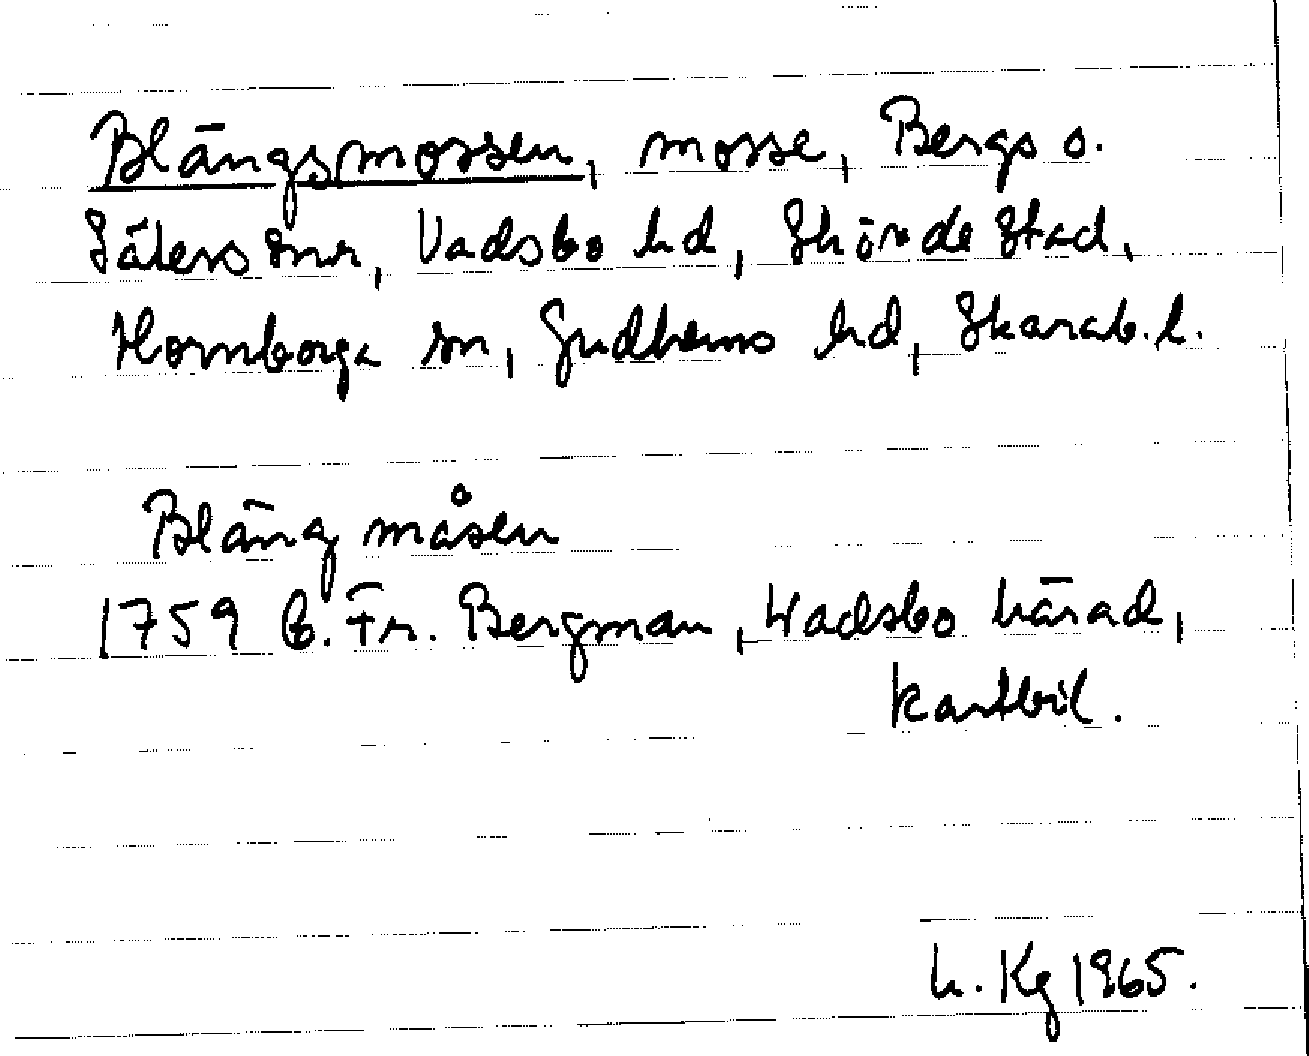 Blängsmossen, mosse, Bergs o.
Säters snr, Vadsbo hd, Skövde stad,
Hornborga sn, Gudhems hd, Skarab. l.
Bläng måsen
1759 B. Fr. Bergman, Wadsbo härad,
kartbil.
L. Kg 1965.